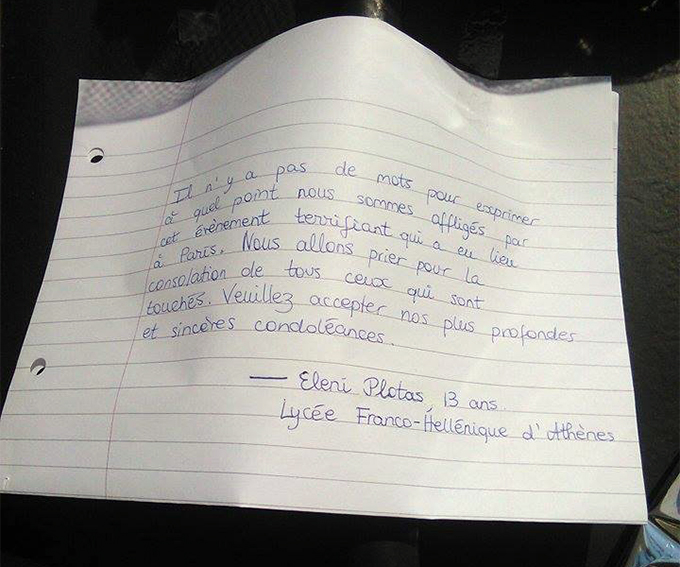 Il n'y a pas de mots pour exprimer
à quel point nous sommes affligés par
cet évènement terrifiant qui a eu lieu
à Paris. Nous allons prier pour la
consolation de tous ceux qui sont
touchés. Veuillez accepter nos plus profondes
et sincères condoléances.
— Eleni Plotas, 13 ans.
Lycée Franco-Hellénique d'Athènes